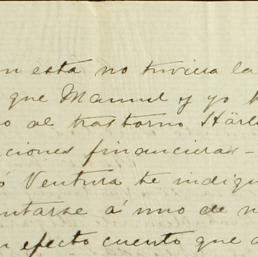 n esta no tuviera la
que Manuel y yo h
o al trastorno Härl
ciones financieras -
ó Ventura te indiq
entarse á uno de n
n efecto cuento que a